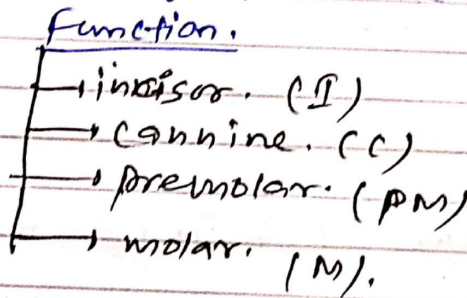 Function.
incisor. (I)
cannine. (C)
premolar. (PM)
molar. (M).